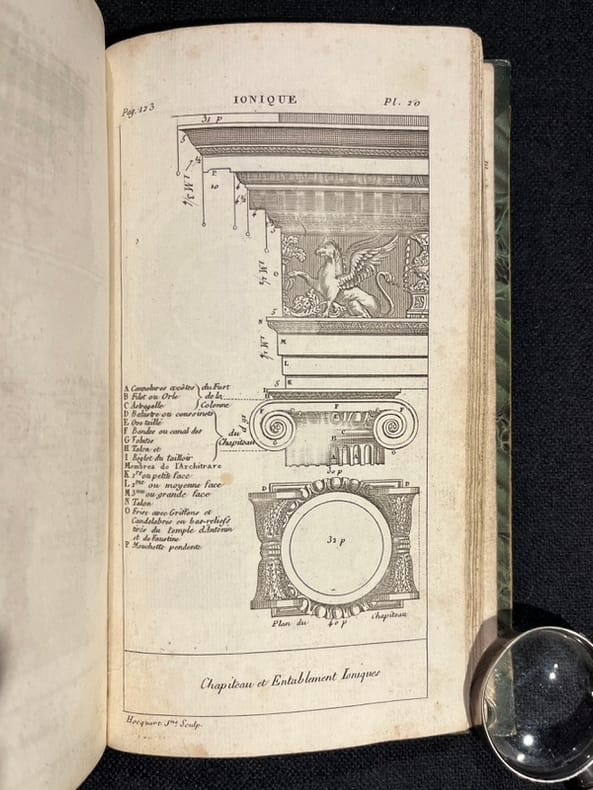 Pag. 123
IONIQUE
Pl. 20
31 p
5
P
10
4
5
1 M 3/4
N
M
L
5 K
I
H
F F F
E
G
B
30 p
A Cannelures à côtes
B Filet ou Orle
C Astragalle
du Fust
de la
Colonne
D Balustre ou coussinets
E Ove taillé
F Bandes ou canal des
G Volutes
H Talon et
I Reglet du tailloir
du
Chapiteau
Membres de l'Architrave
K 1re ou petite face
L 2me ou moyenne face
M 3me ou grande face
N Talon
O Frise avec Griffons et
Candelabres en bas-reliefs
tirés du temple d'Antonin
et de Faustine
P Mouchette pendente
D D
32 p
Plan du 40 p Chapiteau
Chapiteau et Entablement Ioniques
Hocquart Jne Sculp.